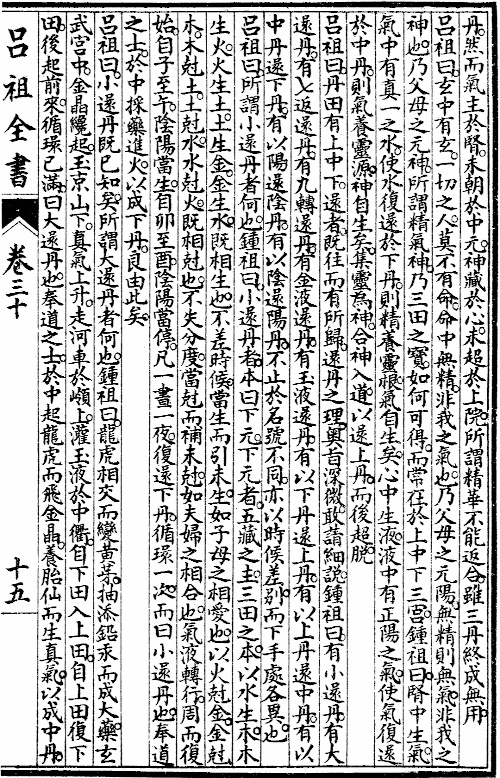 丹然而氣主於腎未朝於中元神藏於心未超於上院所謂精華不能返合雖三丹終成無用
呂祖曰玄中有玄一切之人莫不有命命中無精非我之氣也乃父母之元陽無精則無氣非我之
神也乃父母之元神所謂精氣神乃三田之寶如何可得而常在於上中下三宮鍾祖曰腎中生氣
氣中有真一之水使水復還於下丹則精養靈根氣自生矣心中生液液中有正陽之氣使氣復還
於中丹則氣養靈源神自生矣集靈為神合神入道以還上丹而後超脫
呂祖曰丹田有上中下還者既往而有所歸還丹之理奧旨深微敢請細說鍾祖曰有小還丹有大
還丹有七返還丹有九轉還丹有金液還丹有玉液還丹有以下丹還上丹有以上丹還中丹有以
中丹還下丹有以陽還陰丹有以陰還陽丹不止於名號不同亦以時候差別而下手處各異也
呂祖曰所謂小還丹者何也鍾祖曰小還丹者本曰下元下元者五藏之主三田之本以水生木木
生火火生土土生金金生水既相生也不差時候當生而引未生如子母之相愛也以火尅金金尅
木木尅土土尅水水尅火既相尅也不失分度當尅而補未尅如夫婦之相合也氣液轉行周而復
始自子至午陰陽當生自卯至酉陰陽當停凡一晝一夜復還下丹循環一次而曰小還丹也奉道
之士於中採藥進火以成下丹良由此矣
呂祖曰小還丹既已如矣所謂大還丹者何也鍾祖曰龍虎相交而變黃芽抽添鉛汞而成大藥玄
武宮中金晶纔起玉京山下真氣上升走河車於嶺上灌玉液於中衢自下田入上田自上田復下
田後起前來循環已滿曰大還丹也奉道之士於中起龍虎而飛金晶養胎仙而生真氣以成中丹
呂祖全書
卷三十
十五